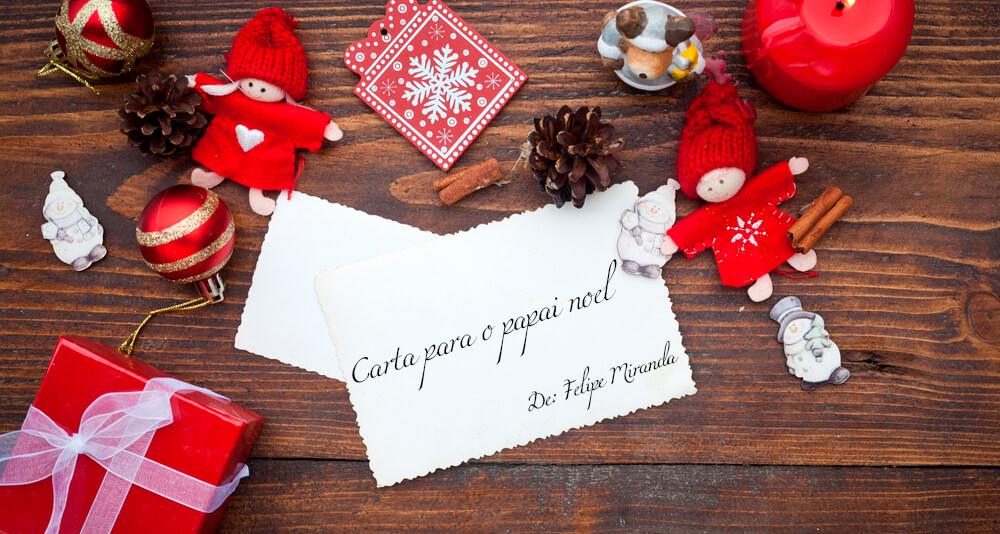 Carta para o papai noel
De: Felipe Miranda